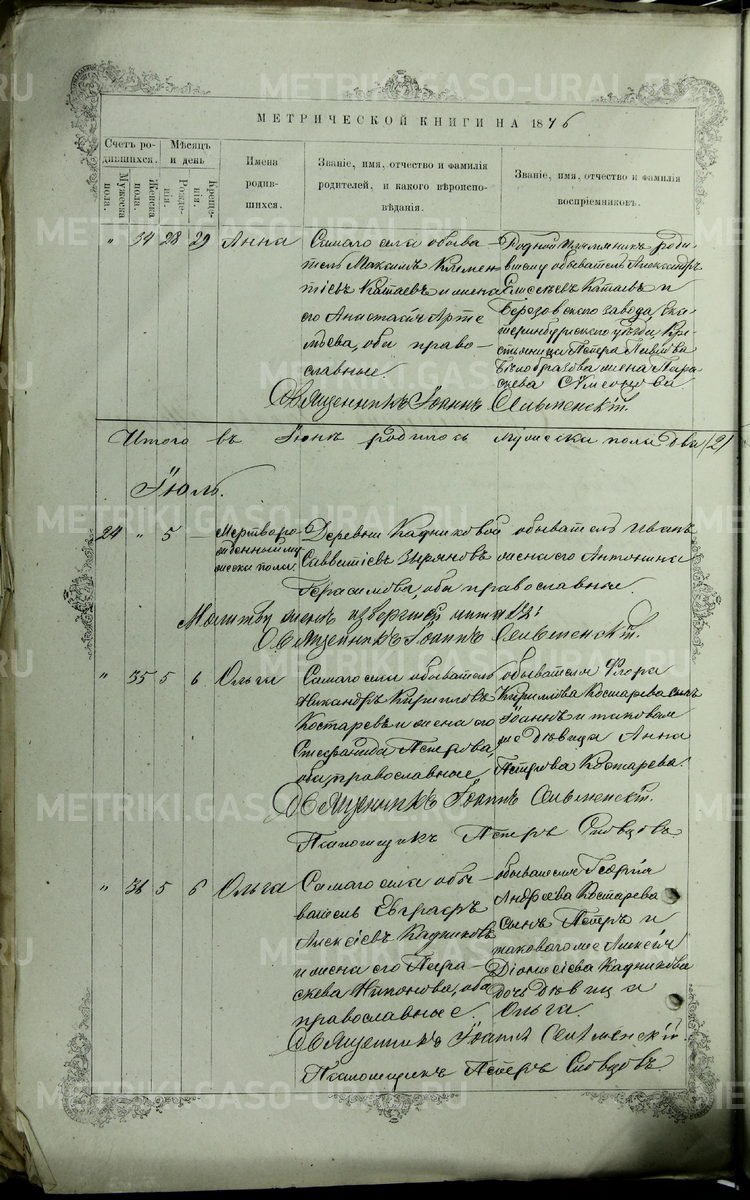 МЕТРИЧЕСКОЙ КНИГИ НА 1876
Счетъ родившихся.
Мѣсяцъ и день
Имена родившихся.
Званіе, имя, отчество и фамилія родителей, и какого вѣроисповѣданія.
Званіе, имя, отчество и фамилія воспріемниковъ.
Мужеска пола.
Женска пола.
Рожденія.
Крещенія.
" 34 28 29 Анна
Самаго села обыва
тель Максимъ Климен
тіевъ Катаевъ и жена
его Анастасія Арте
мьева, оба право-
славные.
Родной племянникъ роди-
вшему обыватель Александръ
Елисѣевъ Катаевъ и
Березовскаго завода, Ека-
теринбургскаго уѣзда, кре-
стьянина Петра
Бѣлобразова жена Пара-
скева
Священникъ Іоаннъ Сельменскій.
Итого въ Іюнѣ родилось мужеска пола два /2/
Іюль.
24 " 5 — Мертворо
жденный му
жеска пола
Деревни Кадниковой обыватель Иванъ
Савватіевъ Зыряновъ жена его Антонина
Герасимова, оба православные.
Молитву женѣ извергшей читалъ:
Священникъ Іоаннъ Сельменскій.
" 35 5 6 Ольга
Самаго села обыватель
Никандръ Кирилловъ
Костаревъ и жена его
Стефанида Петрова,
оба православные
обывателя Флора
Кириллова Костарева сынъ
Іоаннъ и таковая
же дѣвица Анна
Петрова Костарева.
Священникъ Іоаннъ Сельменскій.
Псаломщикъ Петръ Словцовъ.
" 36 5 6 Ольга
Самаго села обы-
ватель Евграфъ
Алексіевъ Кадниковъ
и жена его Пара-
скева Никонова, оба
православные.
обывателя Георгія
Андреева Костарева
сынъ Петръ и
таковаго же Алексія
Діонисіева Кадникова
дочь дѣвица
Ольга.
Священникъ Іоаннъ Сельменскій.
Псаломщикъ Петръ Словцовъ
METRIKI.GASO-URAL.RU